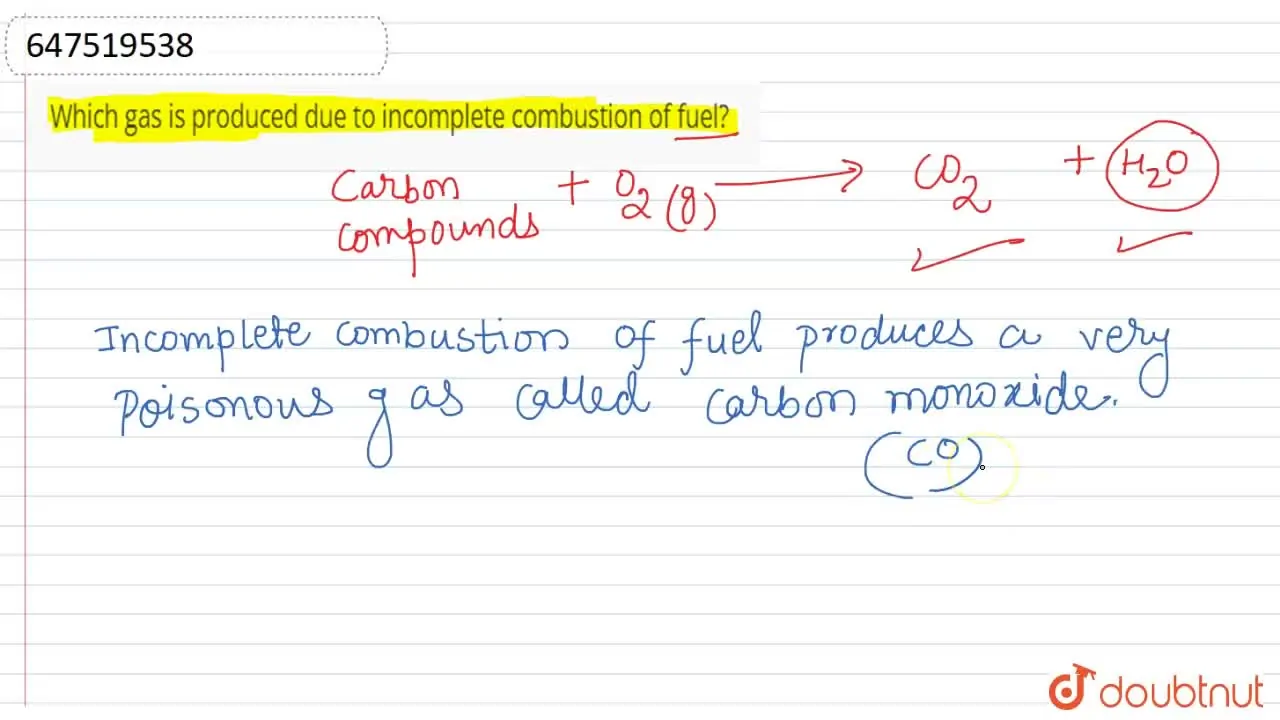 647519538
Which gas is produced due to incomplete combustion of fuel?
Carbon compounds + O2(g) → CO2 + H2O
Incomplete combustion of fuel produces a very
Poisonous gas called carbon monoxide.
(CO)
doubtnut